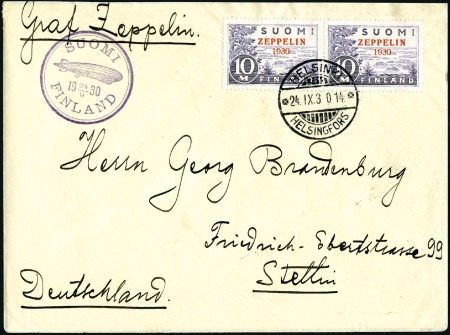 Graf Zeppelin.
SUOMI
ZEPPELIN
1930
10 M
FINLAND
SUOMI
ZEPPELIN
1930
10 M
FINLAND
SUOMI
19 24/9 30
FINLAND
HELSINKI
24.IX.3 0 14.
HELSINGFORS
Herrn Georg Brandenburg
Friedrich-Ebertstrasse 99
Stettin
Deutschland.